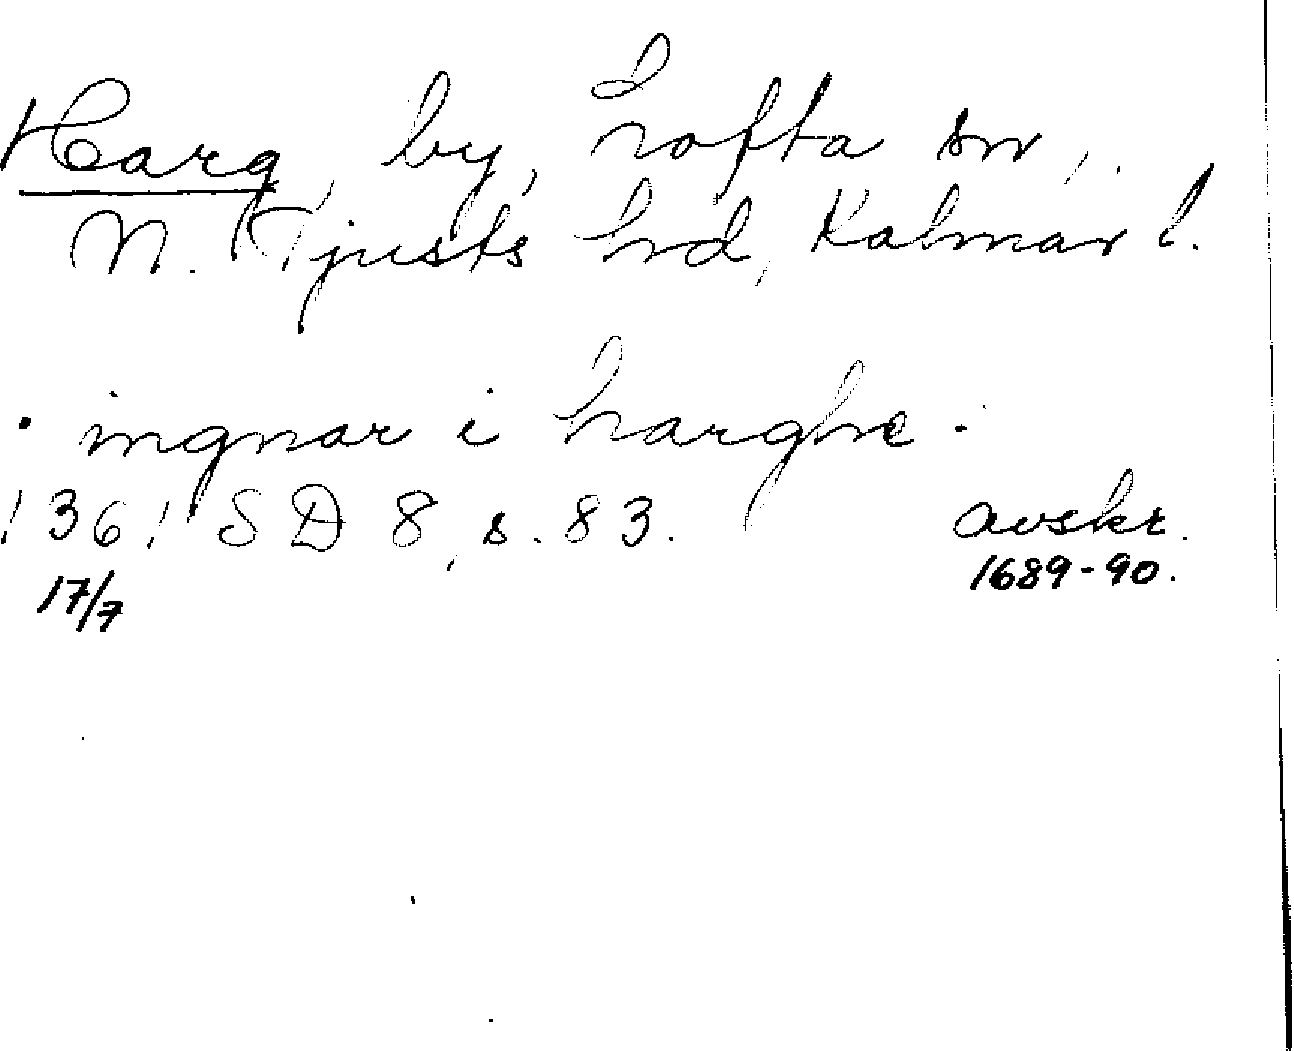 Harg, by, Lofta sn,
N. Tjusts hrd, Kalmar l.
· ingnar i harghe ·
1361 SD 8, s. 83. avskr.
17/7 1689-90.